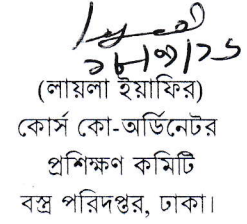 (লায়লা ইয়াফির)
কোর্স কো-অর্ডিনেটর
প্রশিক্ষণ কমিটি
বস্ত্র পরিদপ্তর, ঢাকা।